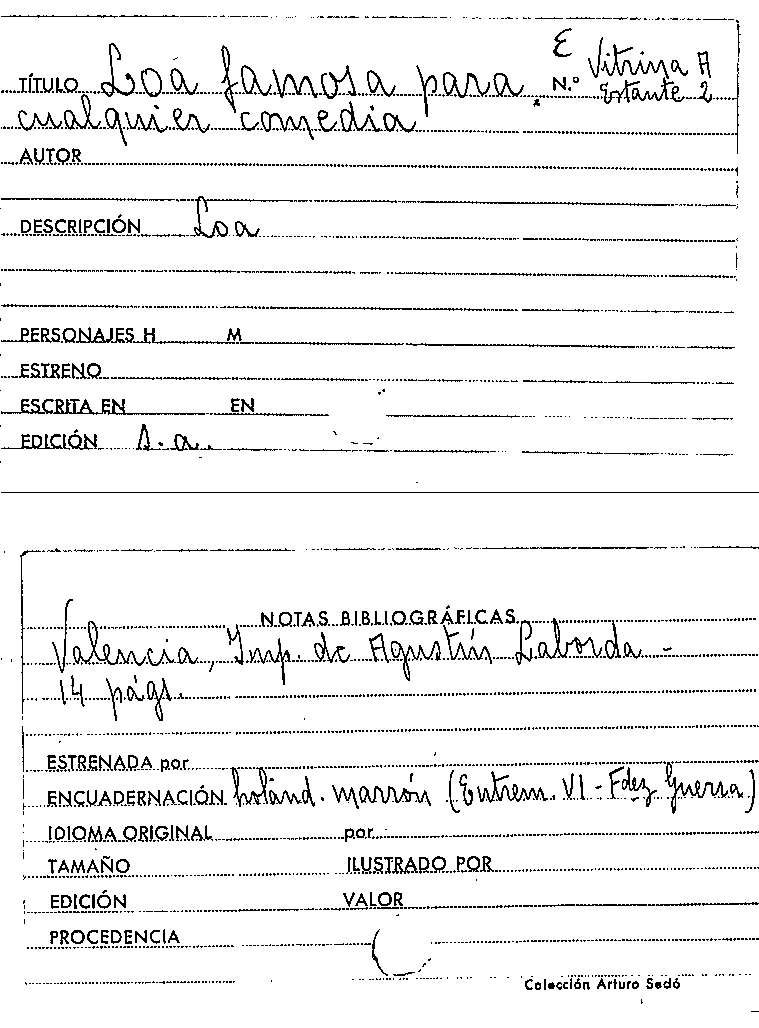 E
TÍTULO Loa famosa para N.º Vitrina A
Estante 2
cualquier comedia
AUTOR
DESCRIPCIÓN Loa
PERSONAJES H M
ESTRENO
ESCRITA EN EN
EDICIÓN s.a.
NOTAS BIBLIOGRÁFICAS
Valencia, Imp. de Agustín Laborda -
14 págs.
ESTRENADA por
ENCUADERNACIÓN holand. marrón (Entrem. VI - Fdez Guerra)
IDIOMA ORIGINAL por
TAMAÑO ILUSTRADO POR
EDICIÓN VALOR
PROCEDENCIA
Colección Arturo Sedó